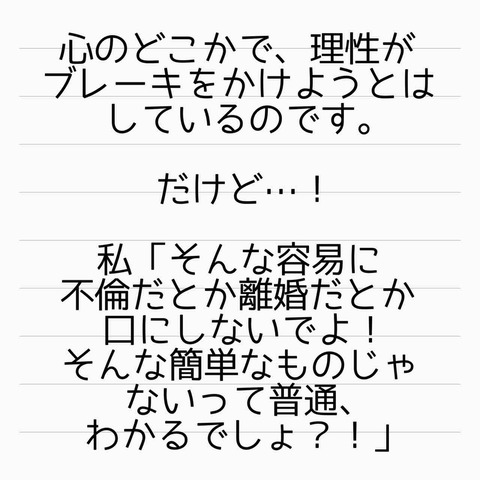 心のどこかで、理性が
ブレーキをかけようとは
しているのです。
だけど…！
私「そんな容易に
不倫だとか離婚だとか
口にしないでよ！
そんな簡単なものじゃ
ないって普通、
わかるでしょ？！」